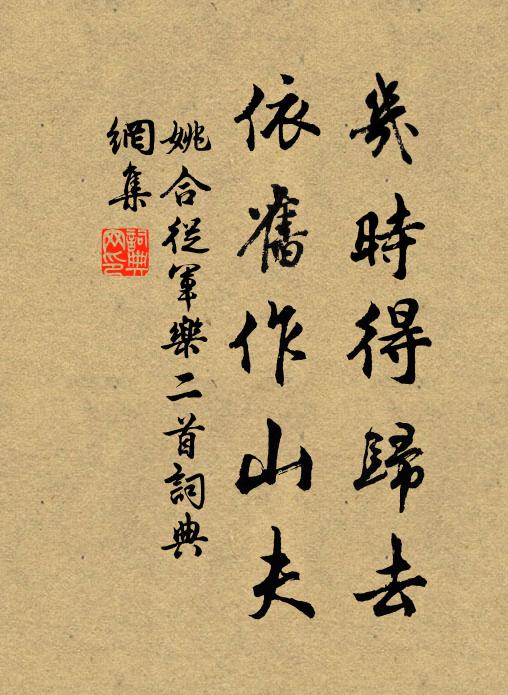 幾時得歸去
依舊作山夫
姚合從軍樂二首詞典
網集
詞典網印